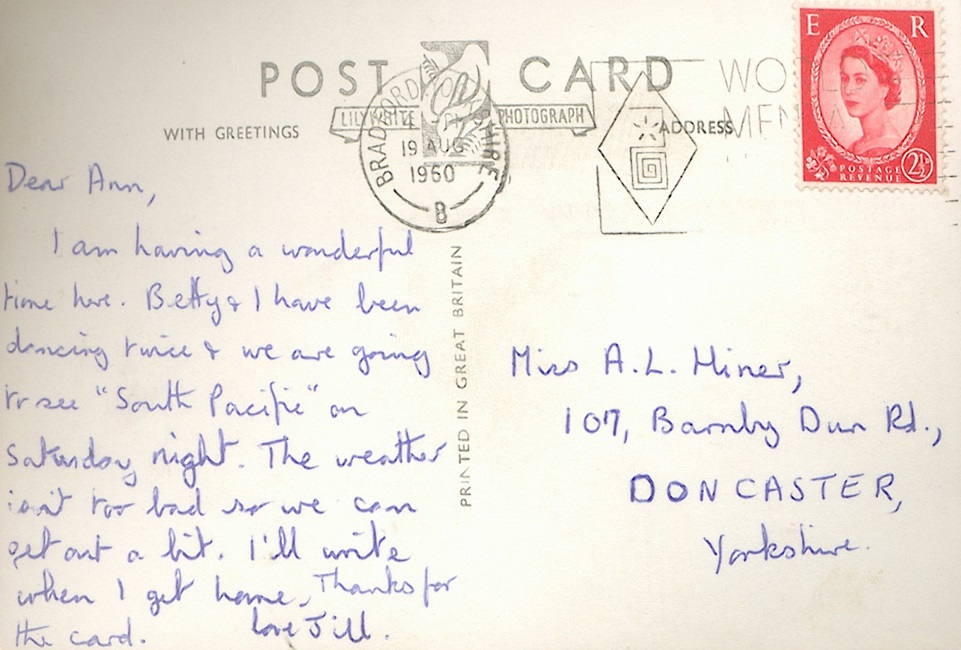 POST CARD
LILYWHITE PHOTOGRAPH
WITH GREETINGS
ADDRESS
BRADFORD YORKSHIRE
19 AUG
1960
B
WO
MEN
E R
POSTAGE
REVENUE
2½D
PRINTED IN GREAT BRITAIN
Dear Ann,
I am having a wonderful
time here. Betty & I have been
dancing twice & we are going
to see "South Pacific" on
Saturday night. The weather
isn't too bad so we can
get out a bit. I'll write
when I get home. Thanks for
the card. love Jill.
Miss A.L. Hiner,
107, Barnby Dun Rd.,
DONCASTER,
Yorkshire.